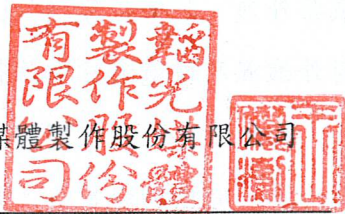 韜光媒體
製作股份
有限公司
媒體製作股份有限公司